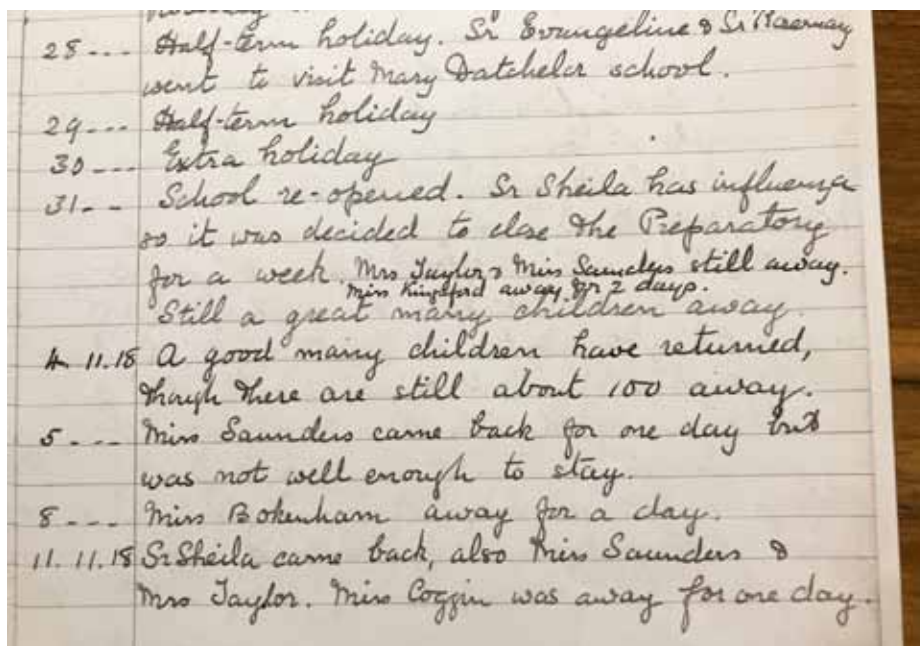 28 --- Half-term holiday. Sr Evangeline & Sr Rosemary
went to visit Mary Datchelor school.
29 --- Half-term holiday
30 --- Extra holiday
31 -- School re-opened. Sr Sheila has influenza
so it was decided to close the Preparatory
for a week. Mrs Taylor & Miss Saunders still away.
Miss Kingsford away for 2 days.
Still a great many children away.
4 11.18 A good many children have returned,
though there are still about 100 away.
5 --- Miss Saunders came back for one day but
was not well enough to stay.
8 --- Miss Bokenham away for a day.
11.11.18 Sr Sheila came back, also Miss Saunders &
Mrs Taylor. Miss Coggin was away for one day.